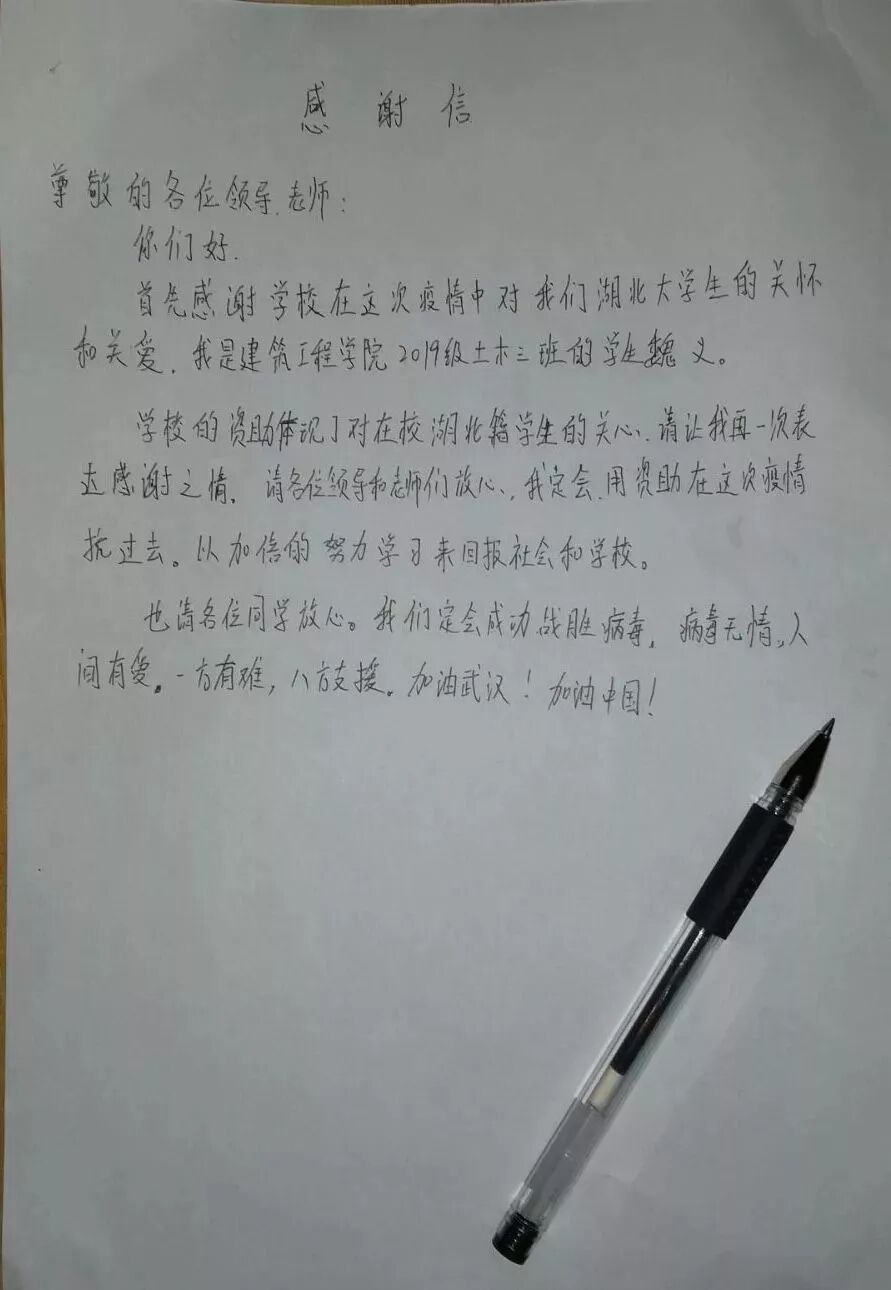 感谢信
尊敬的各位领导.老师:
你们好.
首先感谢学校在这次疫情中对我们湖北大学生的关怀
和关爱.我是建筑工程学院2019级土木三班的学生魏义。
学校的资助体现了对在校湖北籍学生的关心.请让我再一次表
达感谢之情.请各位领导和老师们放心.我定会.用资助在这次疫情
抗过去。以加倍的努力学习来回报社会和学校。
也请各位同学放心。我们定会成功战胜病毒.病毒无情,人
间有爱。一方有难,八方支援.加油武汉!加油中国!